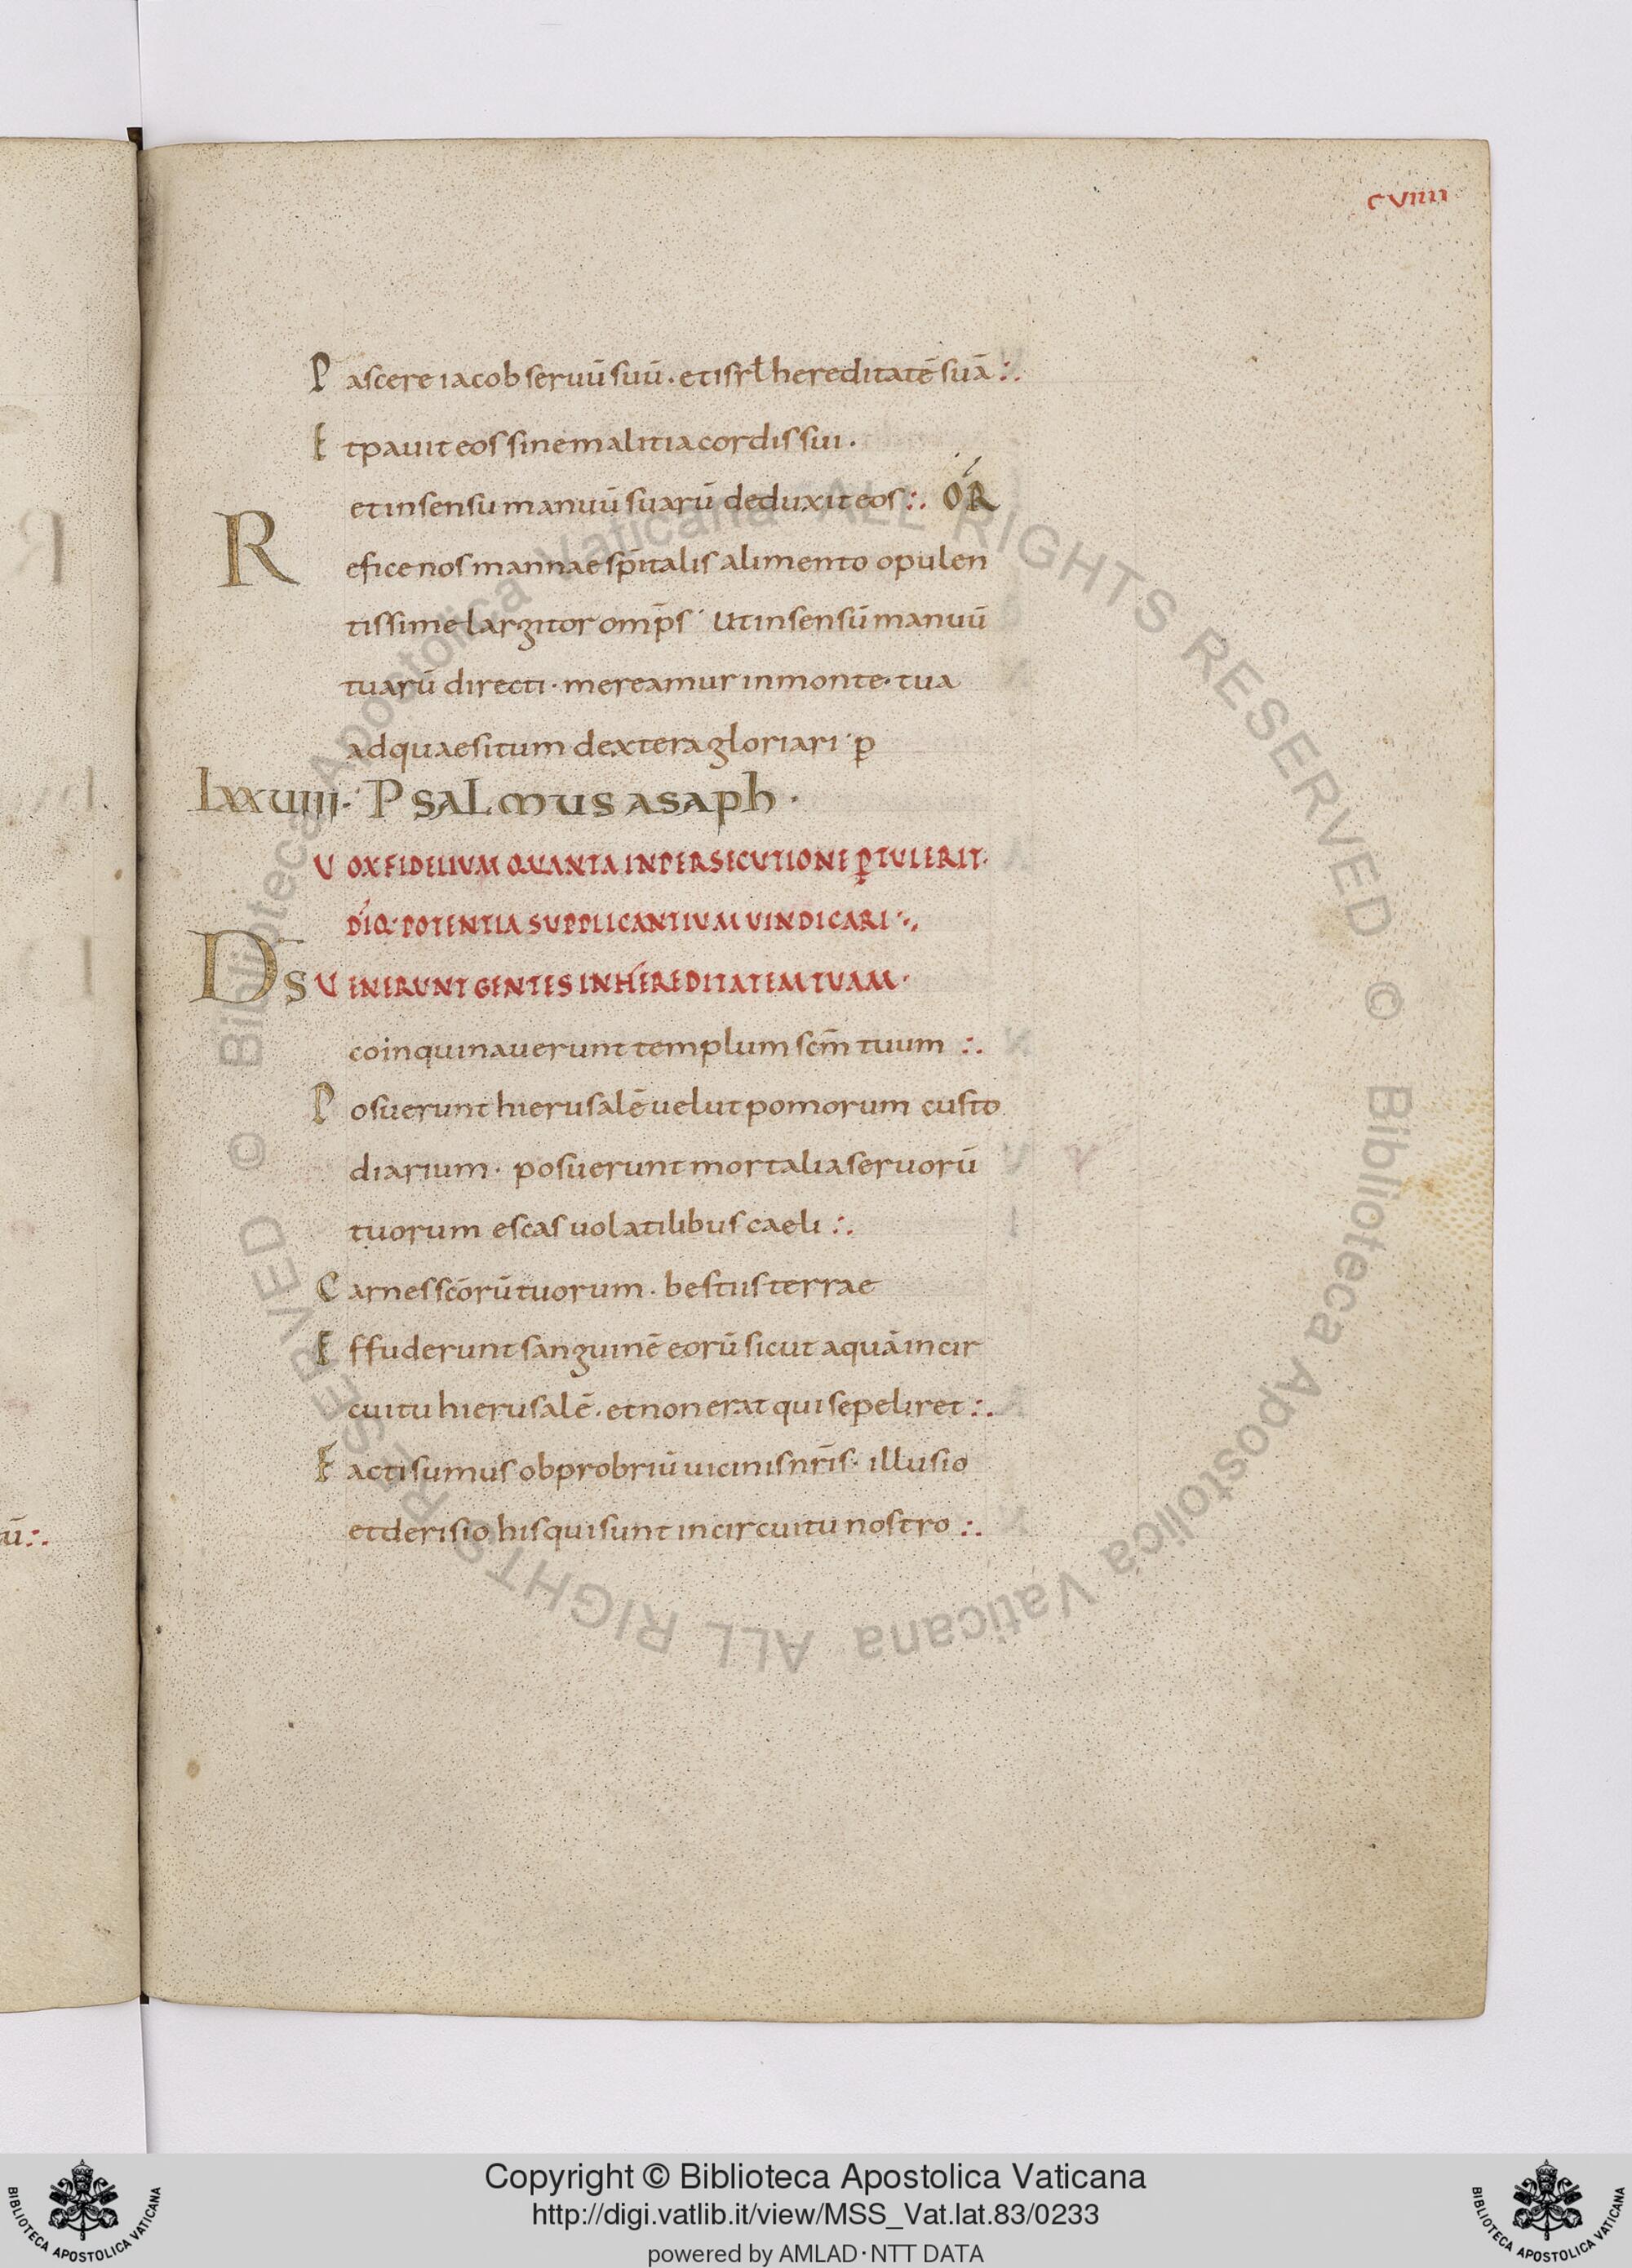 CVIIII
Pascere iacob seruū suū · et isrł hereditatē suā :.
Et pauit eos sine malitia cordis sui ·
et in sensu manuū suarū deduxit eos :. OR
Refice nos mannae sp̄italis alimento opulen
tissime largitor omp̄s Ut in sensū manuū
tuarū directi · mereamur in monte · tua
adquaesitum dextera gloriari · p
LXXVIIII · Psalmus asaph ·
VOX FIDELIUM QUANTA IN PERSECUTIONE P̱TULERIT ·
DIQ· POTENTIA SUPPLICANTIUM UINDICARI :.
Ds UENERUNT GENTES IN HEREDITATEM TUAM ·
coinquinauerunt templum scm̄ tuum :.
Posuerunt hierusalē uelut pomorum custo
diarium · posuerunt mortalia seruorū
tuorum escas uolatilibus caeli :.
Carnes scōrū tuorum · bestiis terrae
Effuderunt sanguinē eorū sicut aquā in cir
cuitu hierusalē · et non erat qui sepeliret :.
Facti sumus obprobriū uicinis nr̄is · illusio
et derisio his qui sunt in circuitu nostro :.
ū :.
© Biblioteca Apostolica Vaticana ALL RIGHTS RESERVED © Biblioteca Apostolica Vaticana ALL RIGHTS RESERVED
Copyright © Biblioteca Apostolica Vaticana
http://digi.vatlib.it/view/MSS_Vat.lat.83/0233
powered by AMLAD·NTT DATA
BIBLIOTECA APOSTOLICA VATICANA
BIBLIOTECA APOSTOLICA VATICANA